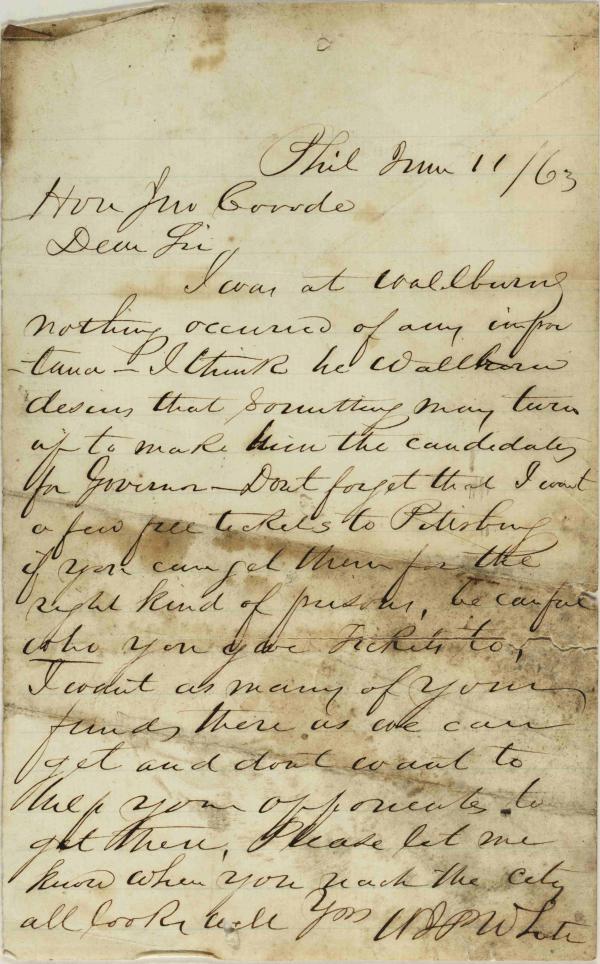 Phil June 11/63
Hon Jno Covode
Dear Sir
I was at Wallburns
nothing occured of any impor
-tance - I think he Wallburn
desires that Something may turn
up to make him the candidate
for Governor - Dont forget that I want
a few free tickets to Pittsburg
if you can get them for the
right kind of persons, be careful
who you give Tickets to,
I want as many of your
funds there as we can
get and dont want to
help your opponents to
get there. Please let me
know when you reach the city
all looks well Yrs W J P White